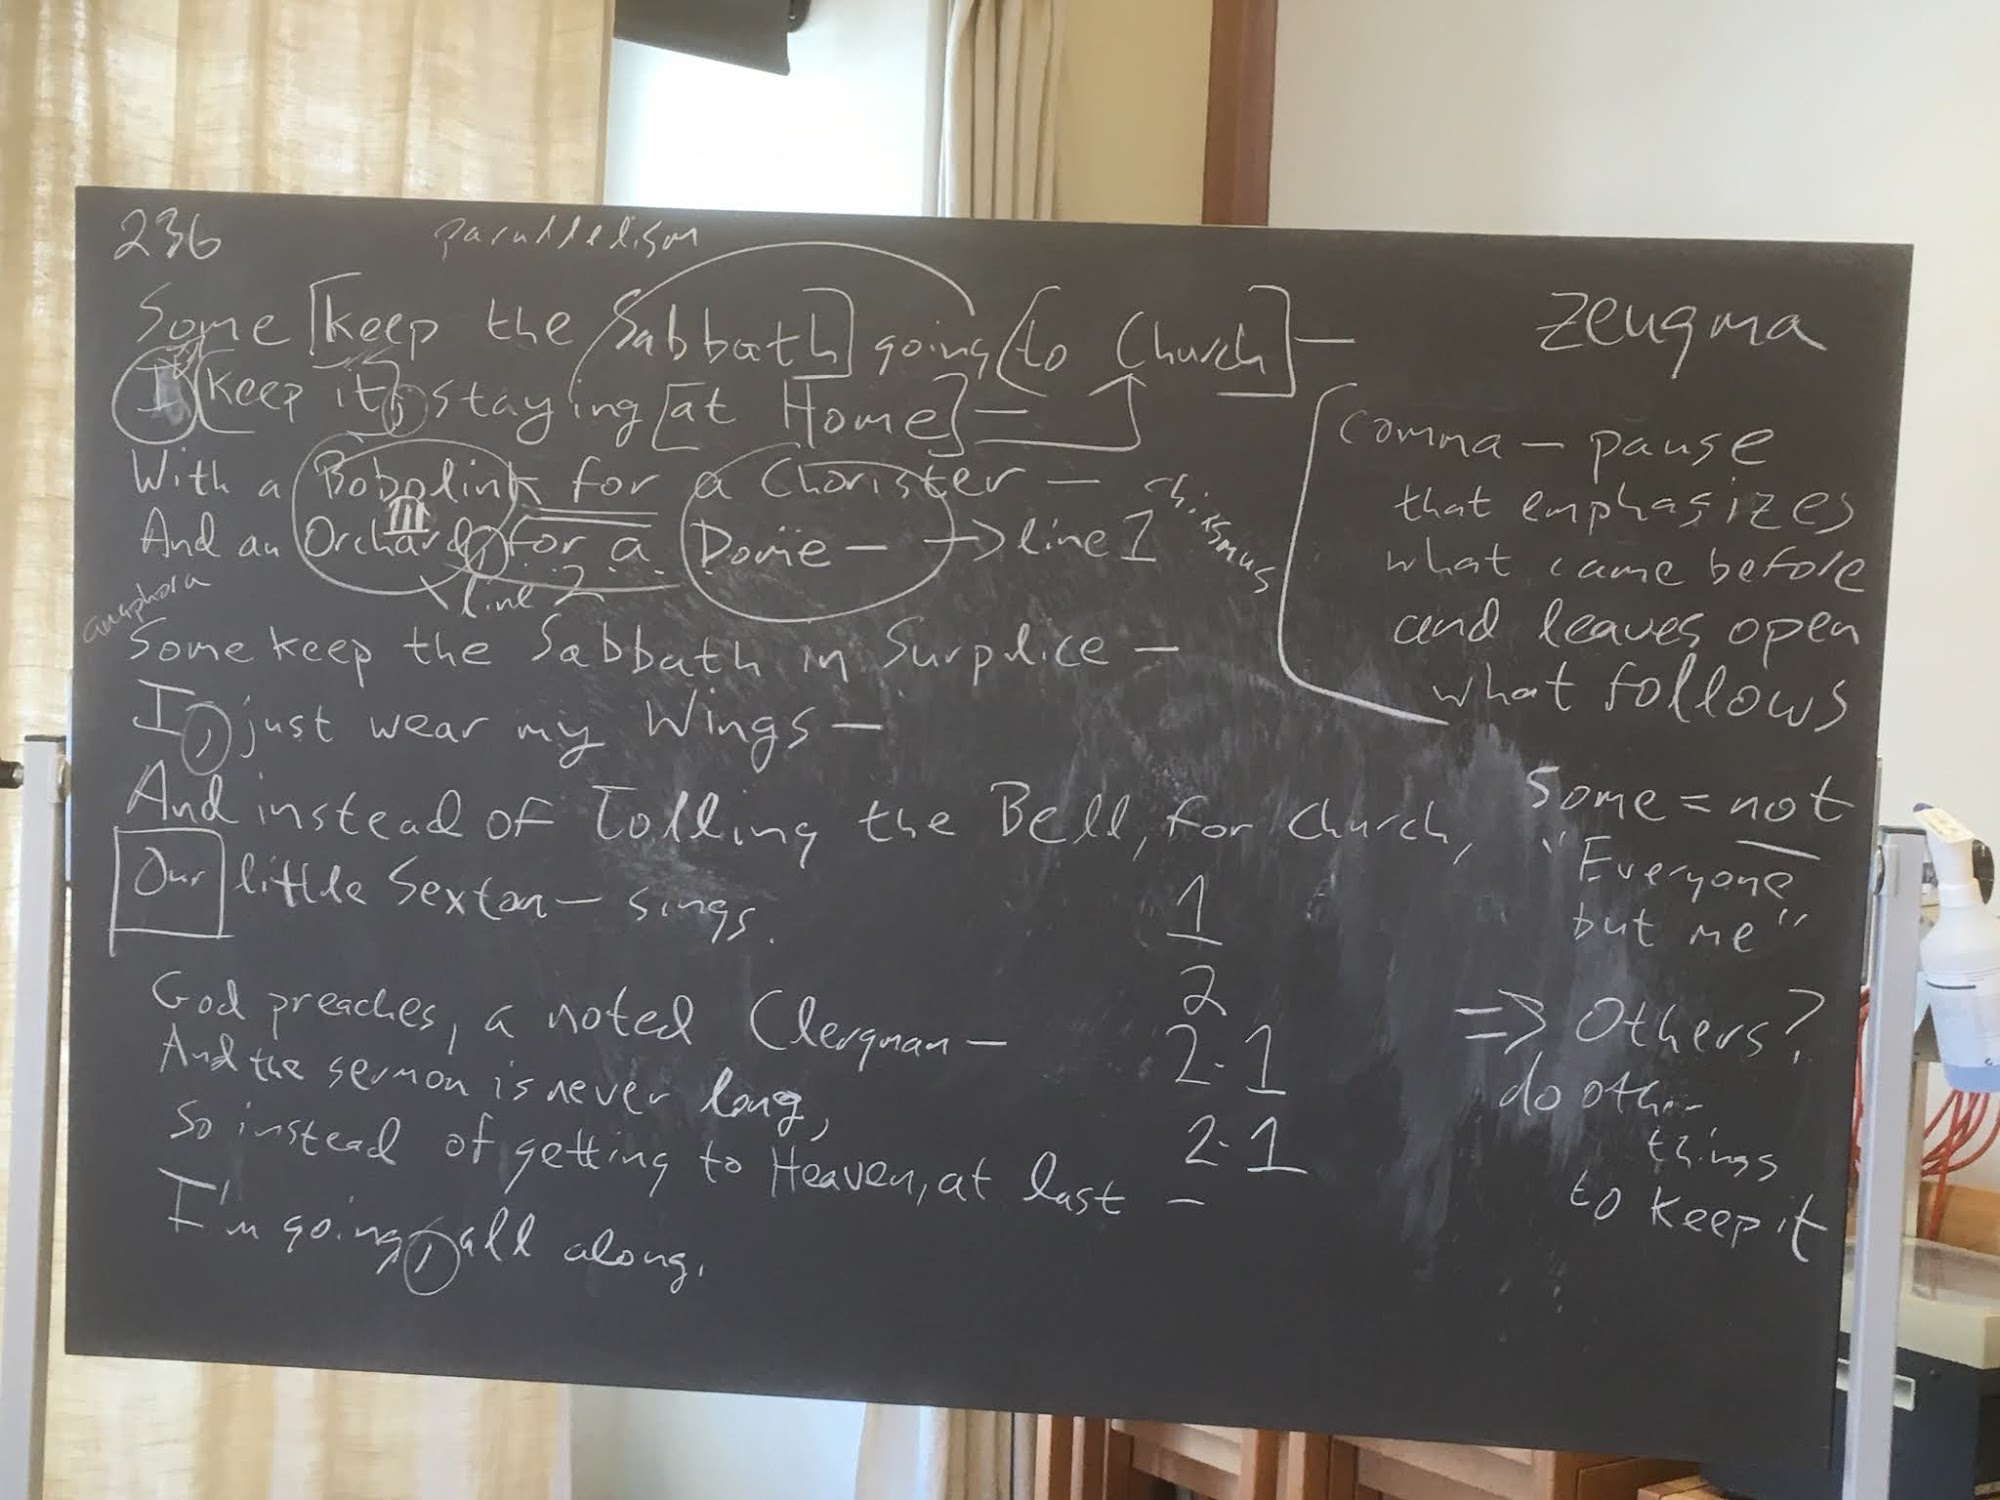 236
parallelism
Some [keep the Sabbath] going [to Church] —
I [keep it], staying [at Home] —
With a Bobolink for a Chorister —
And an Orchard, for a Dome — → line 1
line 2
chiasmus
anaphora
Some keep the Sabbath in Surplice —
I, just wear my Wings —
And instead of Tolling the Bell, for Church,
Our little Sexton — sings.
God preaches, a noted Clergman —
And the sermon is never long,
So instead of getting to Heaven, at last —
I'm going, all along.
1
2
2-1
2-1
Zeugma
comma — pause
that emphasizes
what came before
and leaves open
what follows
Some = not
"Everyone
but me"
⇒ Others?
do other
things
to keep it